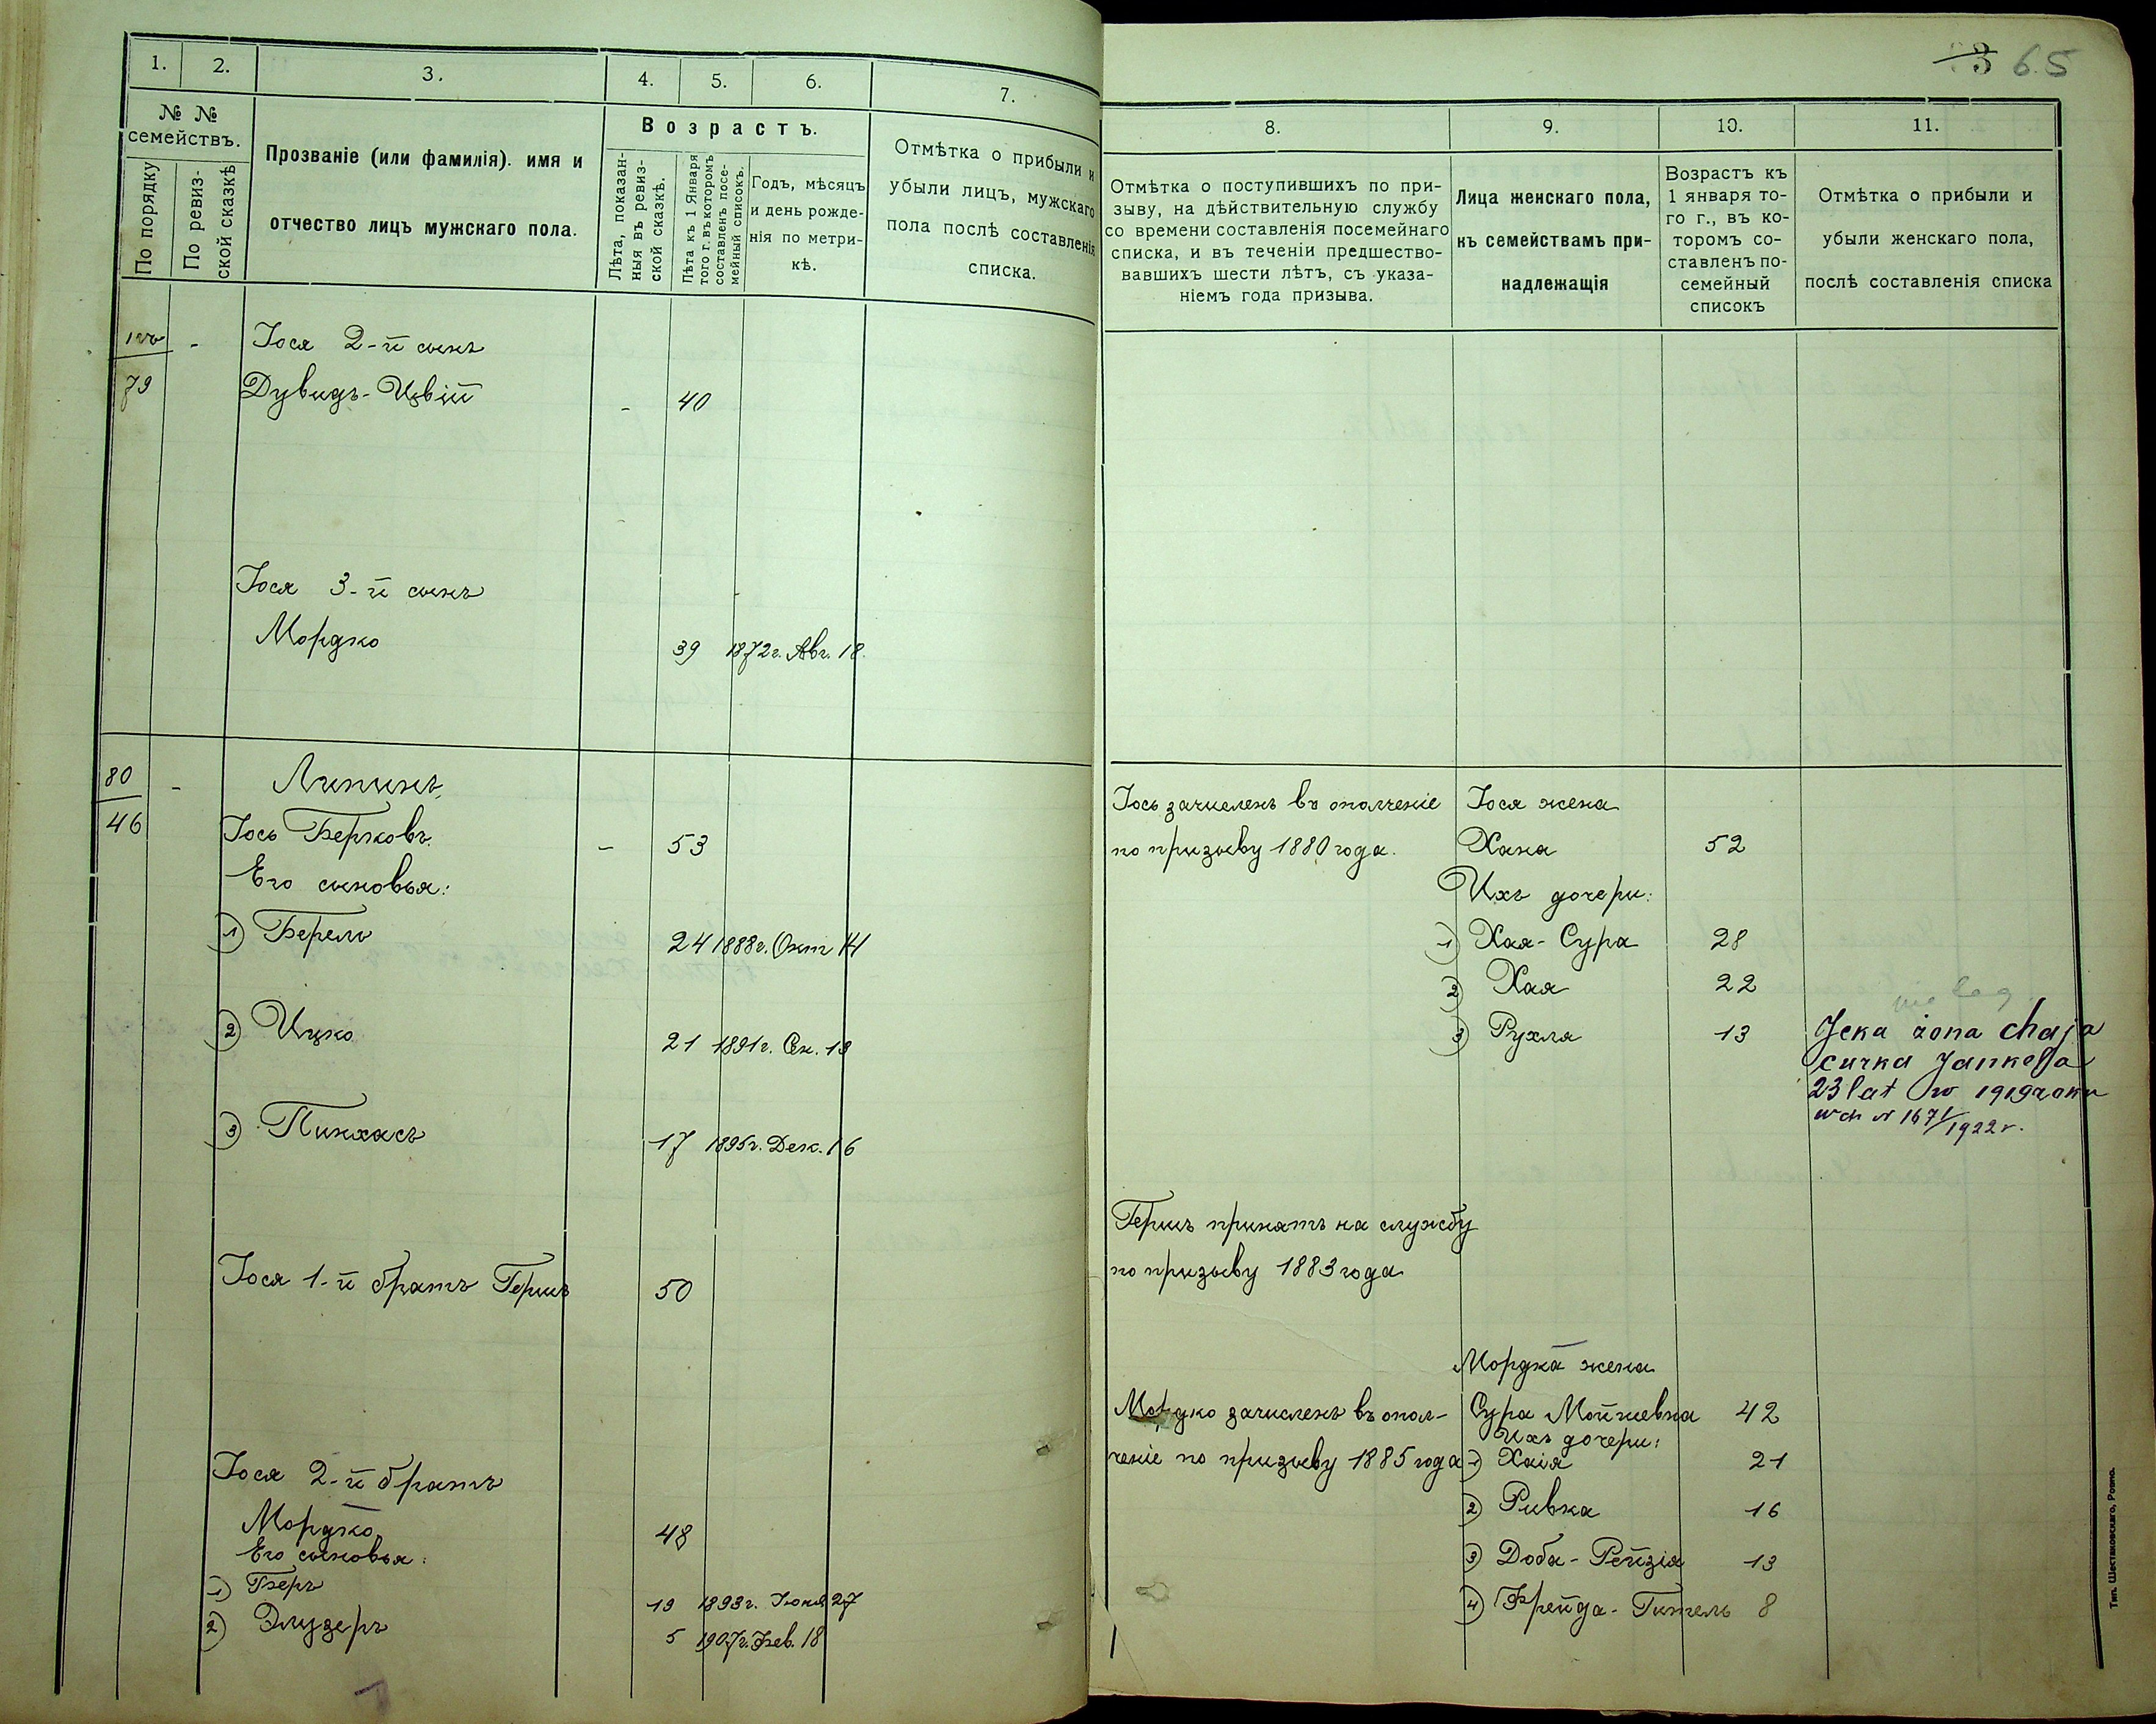 1.
2.
3.
4.
5.
6.
7.
№ №
семействъ.
По порядку
По ревиз-
ской сказкѣ
Прозваніе (или фамилія). имя и
отчество лицъ мужскаго пола.
Возрастъ.
Лѣта, показан-
ныя въ ревиз-
ской сказкѣ.
Лѣта къ 1 Января
того г. въ которомъ
составленъ посе-
мейный списокъ.
Годъ, мѣсяцъ
и день рожде-
нія по метри-
кѣ.
Отмѣтка о прибыли и
убыли лицъ, мужскаго
пола послѣ составленія
списка.
79
-
Іося 2-й сынъ
Дувидъ-Цвій - 40
Іося 3-й сынъ
Мордко 39 1872г. Авг. 18.
80
46
-
Липинъ
Іось Берковъ. - 53
Его сыновья:
1) Берель 24 1888г. Окт 14
2) Ицко 21 1891г. Сен. 19
3) Пинхасъ 17 1895г. Дек. 16
Іося 1-й братъ Гершъ 50
Іося 2-й братъ
Мордко 48
Его сыновья:
1) Беръ 19 1893г. Іюня 27
2) Элузеръ 5 1907г. Фев. 18
3 65
8.
9.
10.
11.
Отмѣтка о поступившихъ по при-
зыву, на дѣйствительную службу
со времени составленія посемейнаго
списка, и въ теченіи предшество-
вавшихъ шести лѣтъ, съ указа-
ніемъ года призыва.
Лица женскаго пола,
къ семействамъ при-
надлежащія
Возрастъ къ
1 января то-
го г., въ ко-
торомъ со-
ставленъ по-
семейный
списокъ
Отмѣтка о прибыли и
убыли женскаго пола,
послѣ составленія списка
Іось зачисленъ въ ополченіе
по призыву 1880 года.
Іося жена
Хана 52
Ихъ дочери:
1) Хая-Сура 28
2) Хая 22
3) Рухля 13
Jcka żona chaja
curka Jankela
23 lat w 1919 roku
wch N 1671/1922 r.
Гершъ принятъ на службу
по призыву 1883 года
Мордка жена
Мордко зачисленъ въ опол-
ченіе по призыву 1885 года
Сура Мошкевна 42
Ихъ дочери:
1) Хаія 21
2) Ривка 16
3) Доба-Рейзія 13
4) Фрейда-Гитель 8
Тип. Шестаковскаго, Ровно.